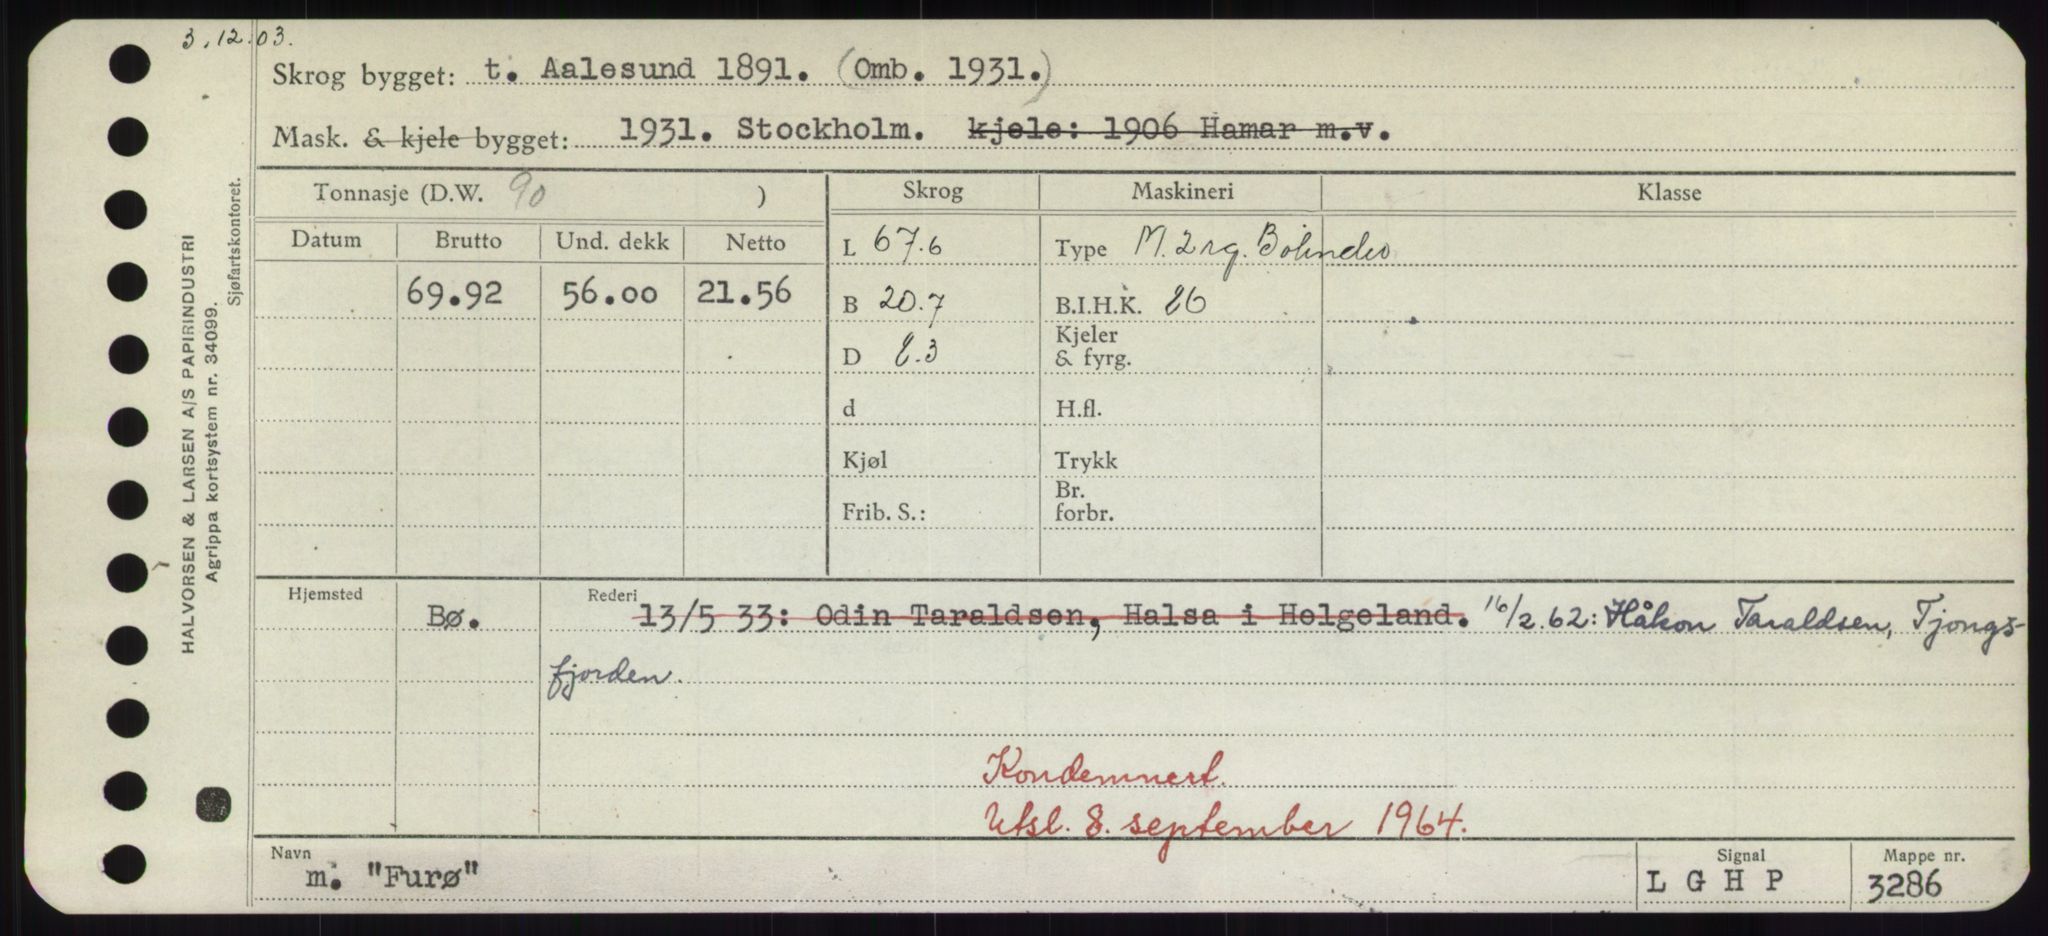 3.12.03.
Skrog bygget: t. Aalesund 1891. (Omb. 1931.)
Mask. & kjele bygget: 1931. Stockholm. kjele: 1906 Hamar m.v.
Tonnasje (D.W. 90 )
Skrog
Maskineri
Klasse
Datum Brutto Und. dekk Netto
69.92 56.00 21.56
L 67.6
Type M. 2 sg. Bolinder
B 20.7
B.I.H.K. 86
D 8.3
Kjeler
& fyrg.
d
H.fl.
Kjøl
Trykk
Frib. S.:
Br.
forbr.
Hjemsted Bø.
Rederi 13/5 33: Odin Taraldsen, Halsa i Helgeland. 16/2.62: Håkon Taraldsen, Tjongs-
fjorden.
Kondemnert.
Utsl. 8. september 1964.
Navn m. "Furø"
Signal LGHP
Mappe nr. 3286
HALVORSEN & LARSEN A/S PAPIRINDUSTRI
Agrippa kortsystem nr. 34099.
Sjøfartskontoret.